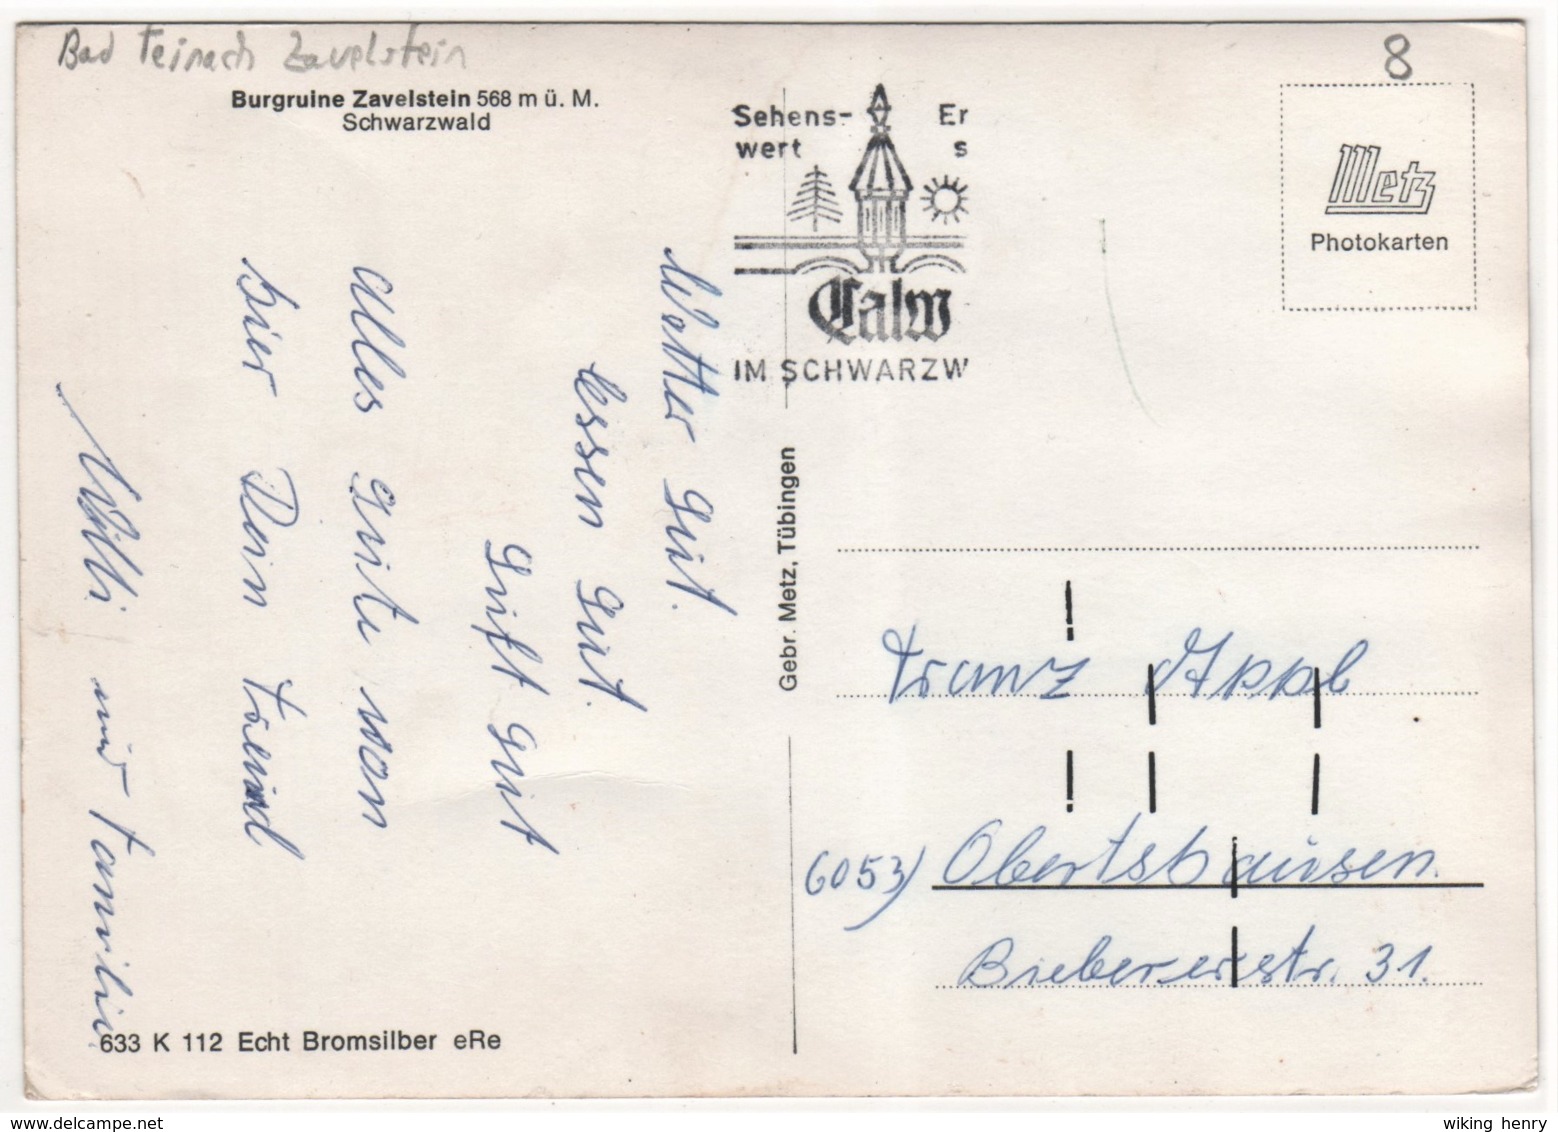 Bad Teinach Zavelstein
8
Burgruine Zavelstein 568 m ü. M.
Schwarzwald
Sehens- Er
wert s
Calw
IM SCHWARZW
Metz
Photokarten
Wetter gut.
Essen gut.
Luft gut
alles gute von
hier Dein Freund
Willi und Familie
Gebr. Metz, Tübingen
Franz Appl
6053) Obertshausen
Bieberer str. 31.
633 K 112 Echt Bromsilber eRe
wiking henry